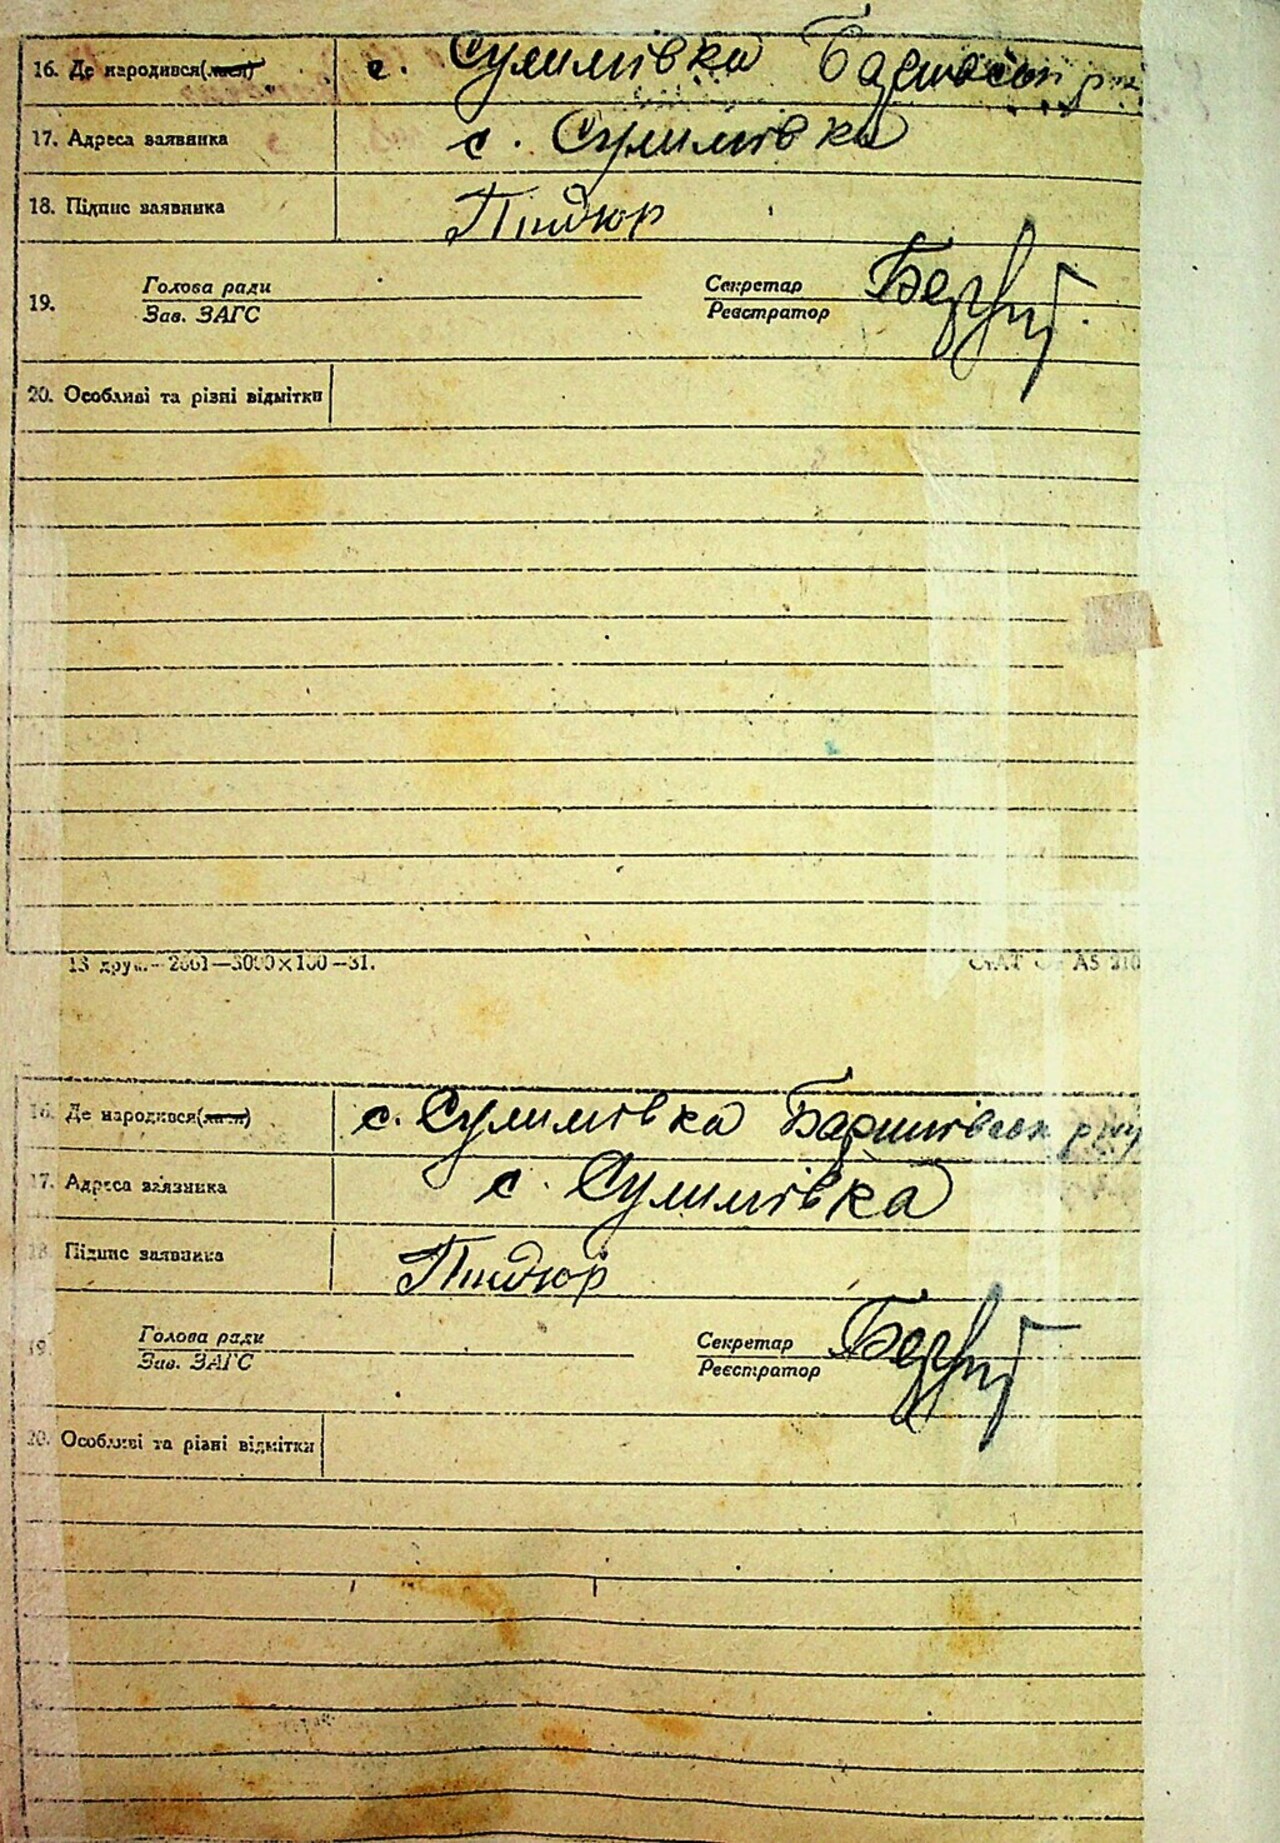 16. Де народився(лася) с. Сулимівка
17. Адреса заявника с. Сулимівка
18. Підпис заявника Пиндюр
19. Голова ради
Зав. ЗАГС
Секретар
Реєстратор
20. Особливі та різні відмітки
13 друк.—2661—3000×100—31.
А5 210
16. Де народився(лася) с. Сулимівка Баришівськ р-ну
17. Адреса заявника с. Сулимівка
18. Підпис заявника Пиндюр
19. Голова ради
Зав. ЗАГС
Секретар
Реєстратор
20. Особливі та різні відмітки